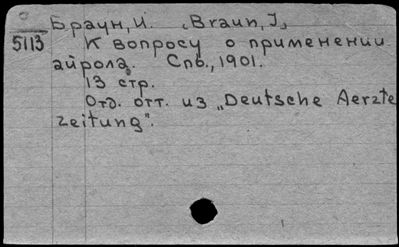 Браун, И. (Braun, J.)
5113
К вопросу о применении
айрола. Спб., 1901.
13 стр.
Отд. отт. из „Deutsche Aerzte
Zeitung".